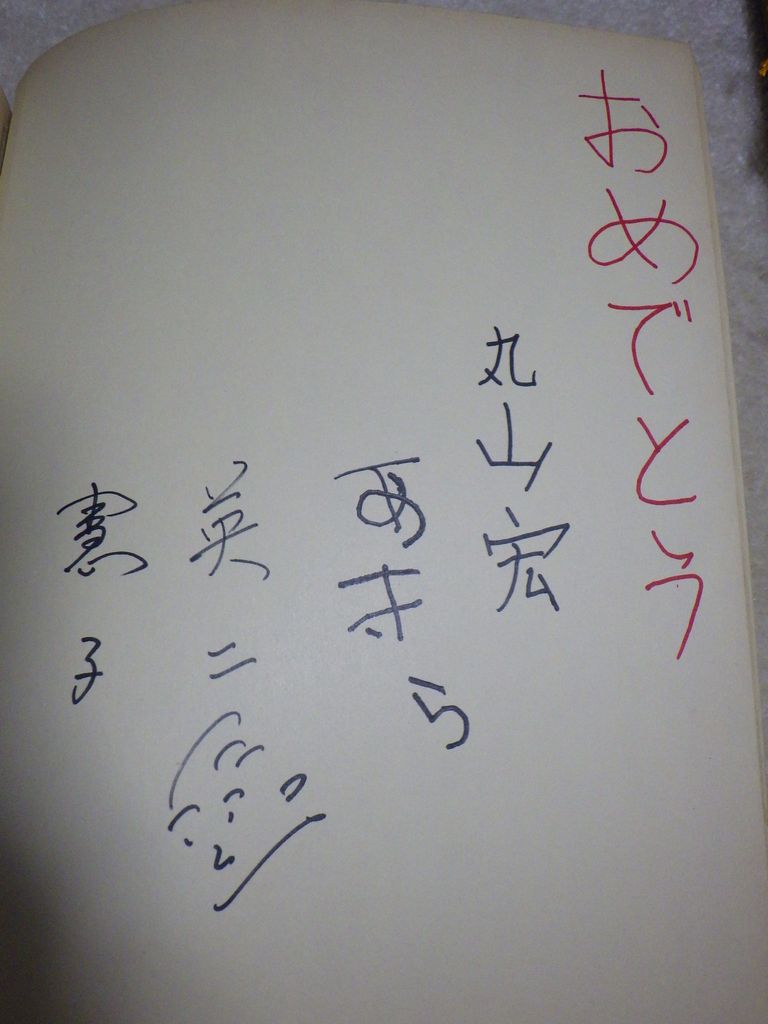 おめでとう
丸山宏
あきら
英二
憲子